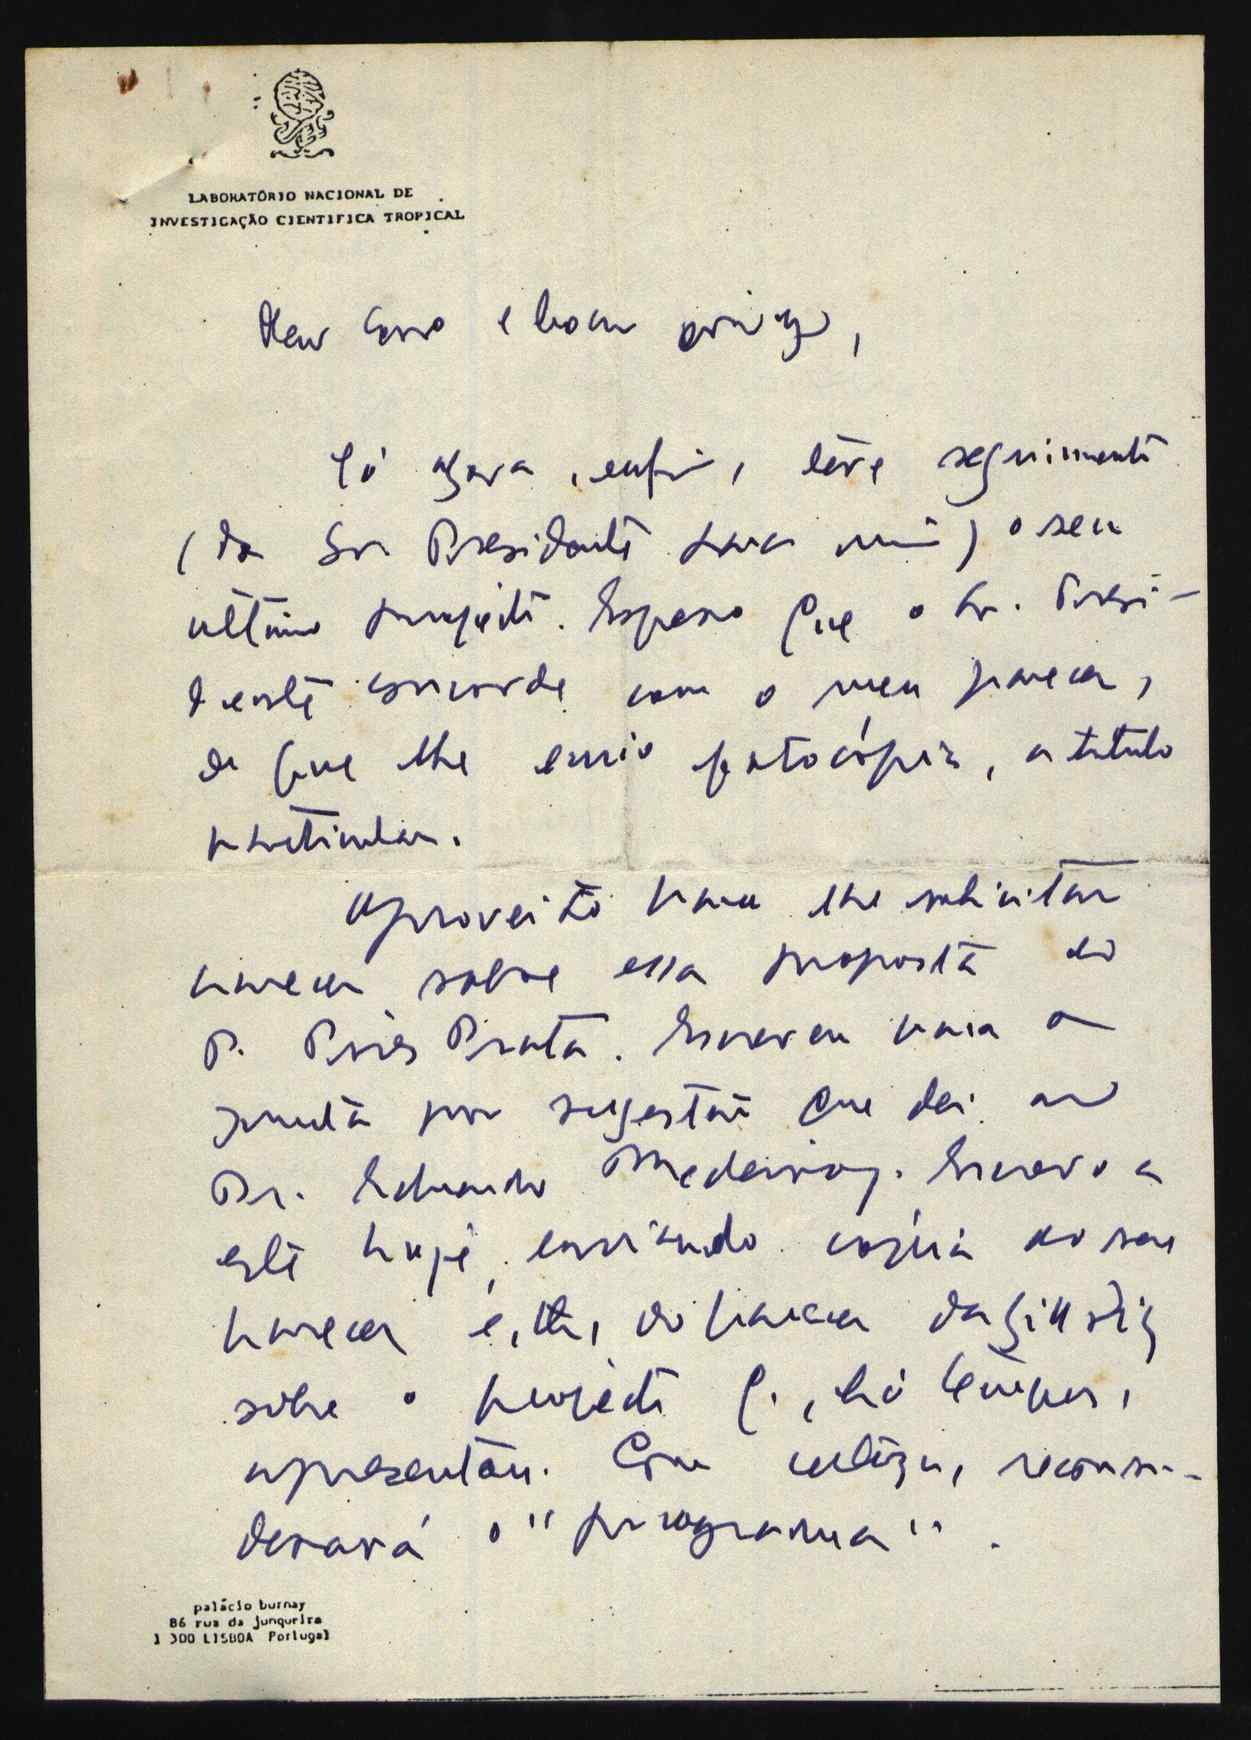 LABORATÓRIO NACIONAL DE
INVESTIGAÇÃO CIENTIFICA TROPICAL
Meu caro e bom amigo,
Só agora, enfim, teve seguimento
(do Sr. Presidente para mim) o seu
último projecto. Espero que o Sr. Presi-
dente concorde com o meu parecer,
de que lhe envio fotocópia, a título
particular.
Aproveito para lhe solicitar
parecer sobre essa proposta do
P. Pires Prata. Escreveu para a
Junta por sugestão que dei ao
Dr. Eduardo Medeiros. Escrevo a
este hoje, enviando cópia do seu
parecer e, tb, do parecer
sobre o projecto q., há tempos,
apresentou. Com certeza, reconsi-
derará o "programa".
palácio burnay
86 rua da junqueira
1 300 LISBOA Portugal